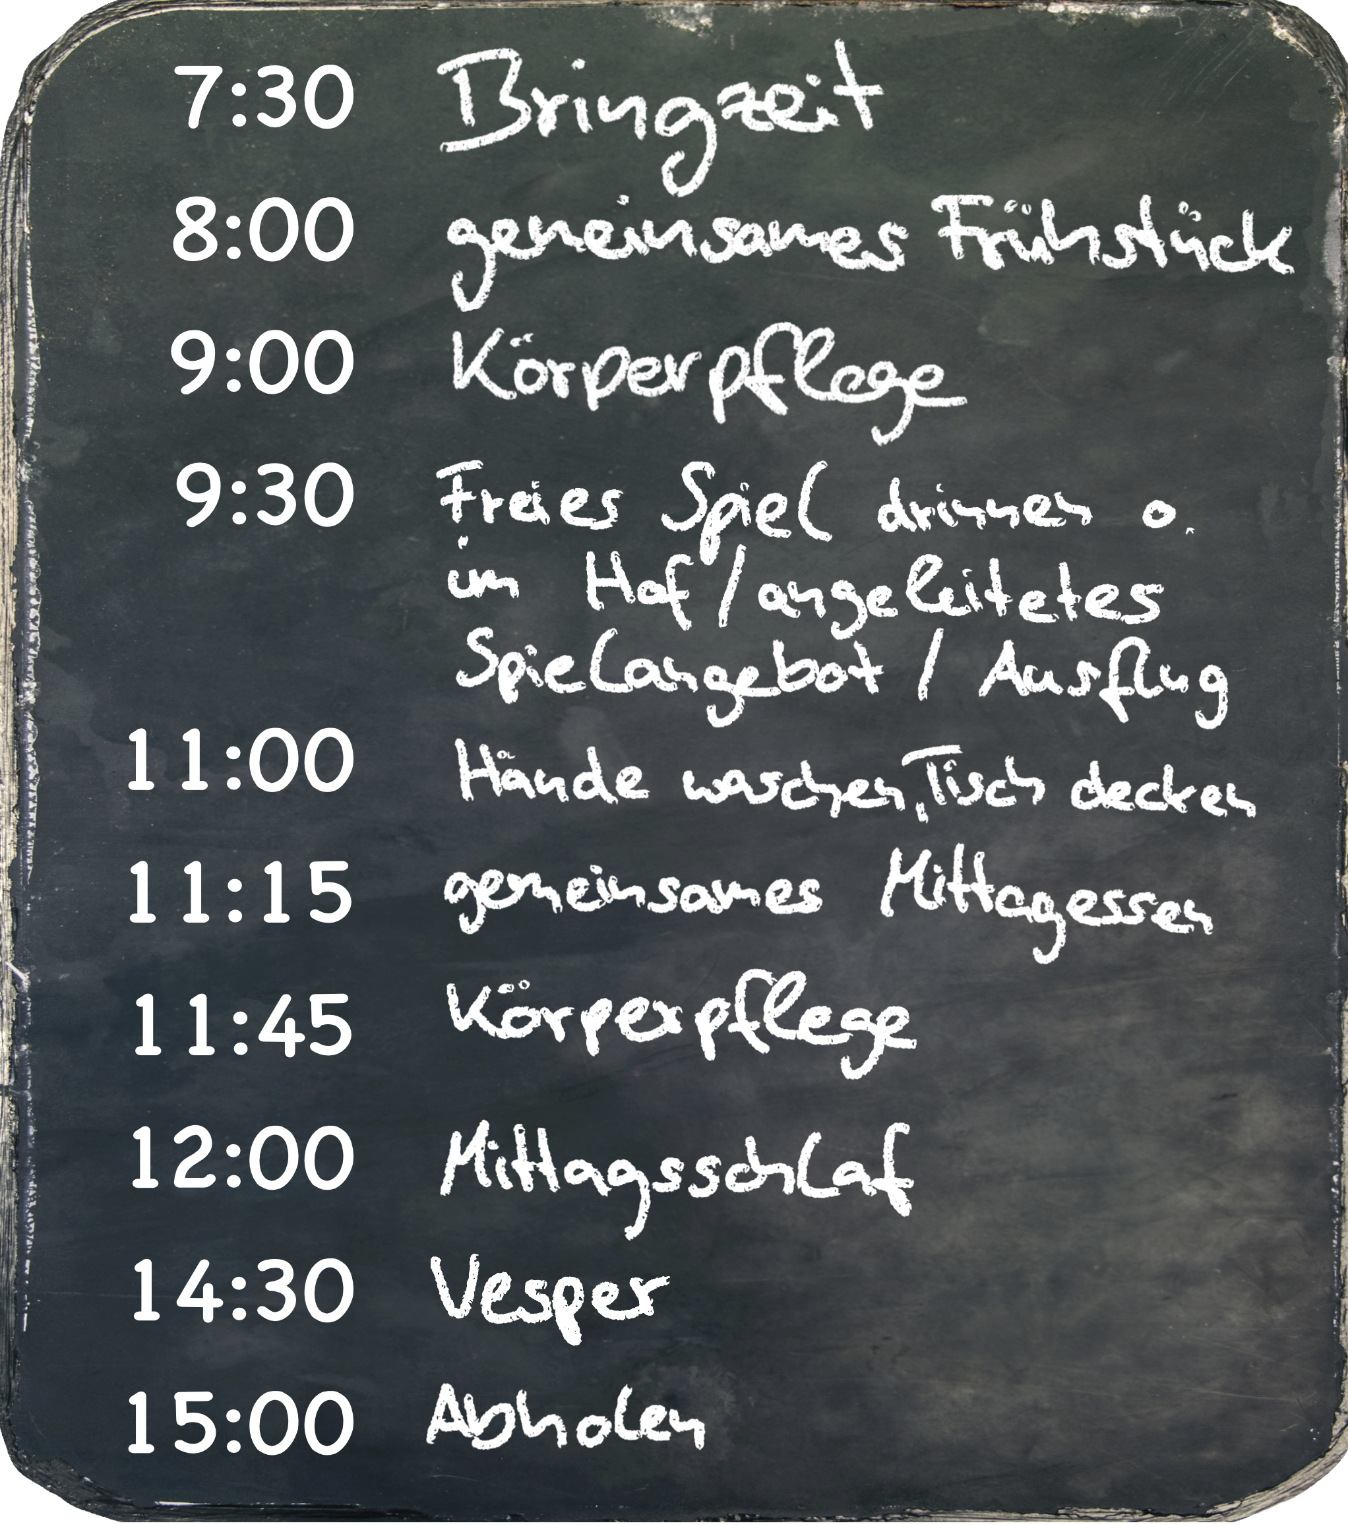 7:30 Bringzeit
8:00 gemeinsames Frühstück
9:00 Körperpflege
9:30 Freies Spiel drinnen o.
im Hof / angeleitetes
Spielangebot / Ausflug
11:00 Hände waschen, Tisch decken
11:15 gemeinsames Mittagessen
11:45 Körperpflege
12:00 Mittagsschlaf
14:30 Vesper
15:00 Abholen